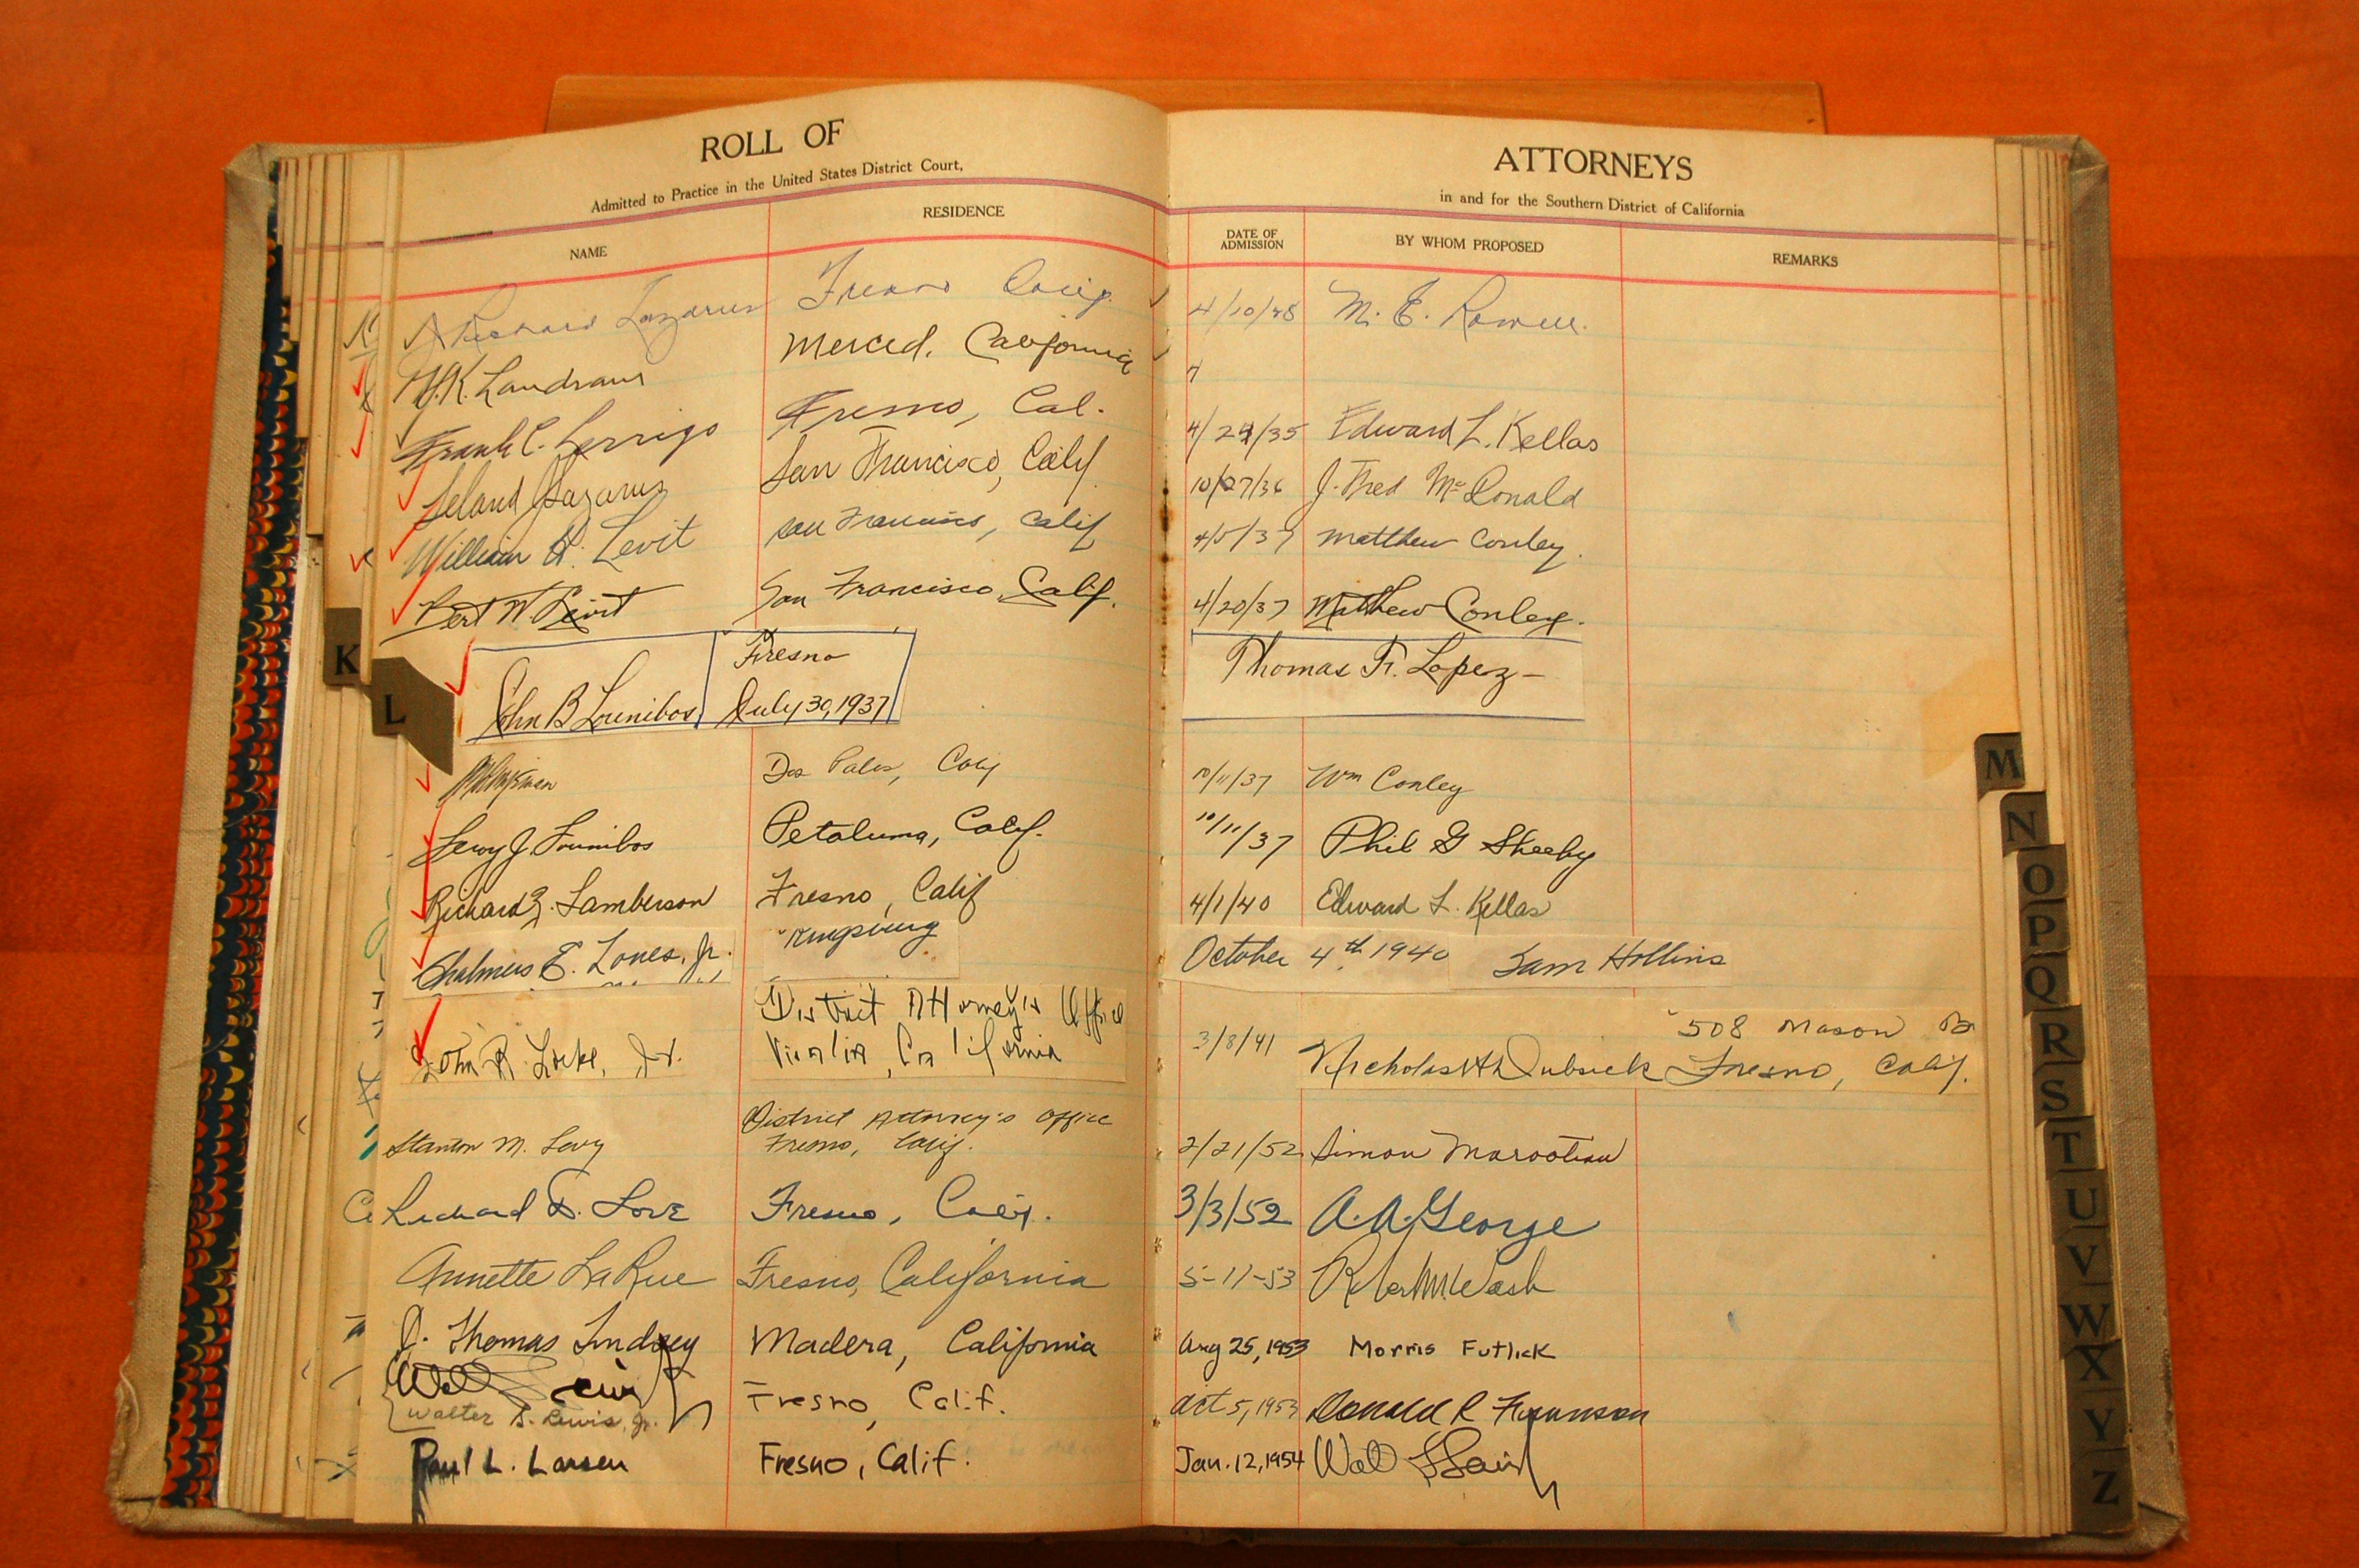 ROLL OF ATTORNEYS
Admitted to Practice in the United States District Court, in and for the Southern District of California
NAME RESIDENCE DATE OF ADMISSION BY WHOM PROPOSED REMARKS
Richard Lazarus Fresno Calif. 4/10/48 M. E. Rowell.
Landram Merced, California
Frank C. Lerrigo Fresno, Cal. 4/29/35 Edward L. Kellas
Leland J Lazarus San Francisco, Calif 10/27/36 J. Fred McDonald
William H. Levit San Francisco, Calif 4/5/37 Matthew Conley.
Bert W Levit San Francisco, Calif. 4/20/37 Matthew Conley.
Fresno Thomas F. Lopez-
John B Lounibos July 30, 1937
Dos Palos, Calif 10/11/37 Wm Conley
Leroy J. Lounibos Petaluma, Calif. 10/11/37 Phil G Sheehy
Richard Lamberson Fresno, Calif 4/1/40 Edward L. Kellas
Chalmers E. Lones, Jr. Kingsburg October 4th 1940 Sam Hollins
District Attorney's Office 508 Mason
John R. Locke, Jr. Visalia, California 3/8/41 Nicholas Fresno, Calif.
District Attorney's Office
Stanton M. Levy Fresno, Calif. 2/21/52 Simon Marootian
Richard Love Fresno, Calif. 3/3/52 A. A. George
Annette LaRue Fresno, California 5-11-53 Robert M. Wash
J. Thomas Lindsey Madera, California Aug 25, 1953 Morris Futlick
Fresno, Calif. Oct 5, 1953 Donald R Franson
Walter S. Lewis, Jr.
Paul L. Larsen Fresno, Calif. Jan. 12, 1954
K
L
M
N
O
P
Q
R
S
T
U
V
W
X
Y
Z